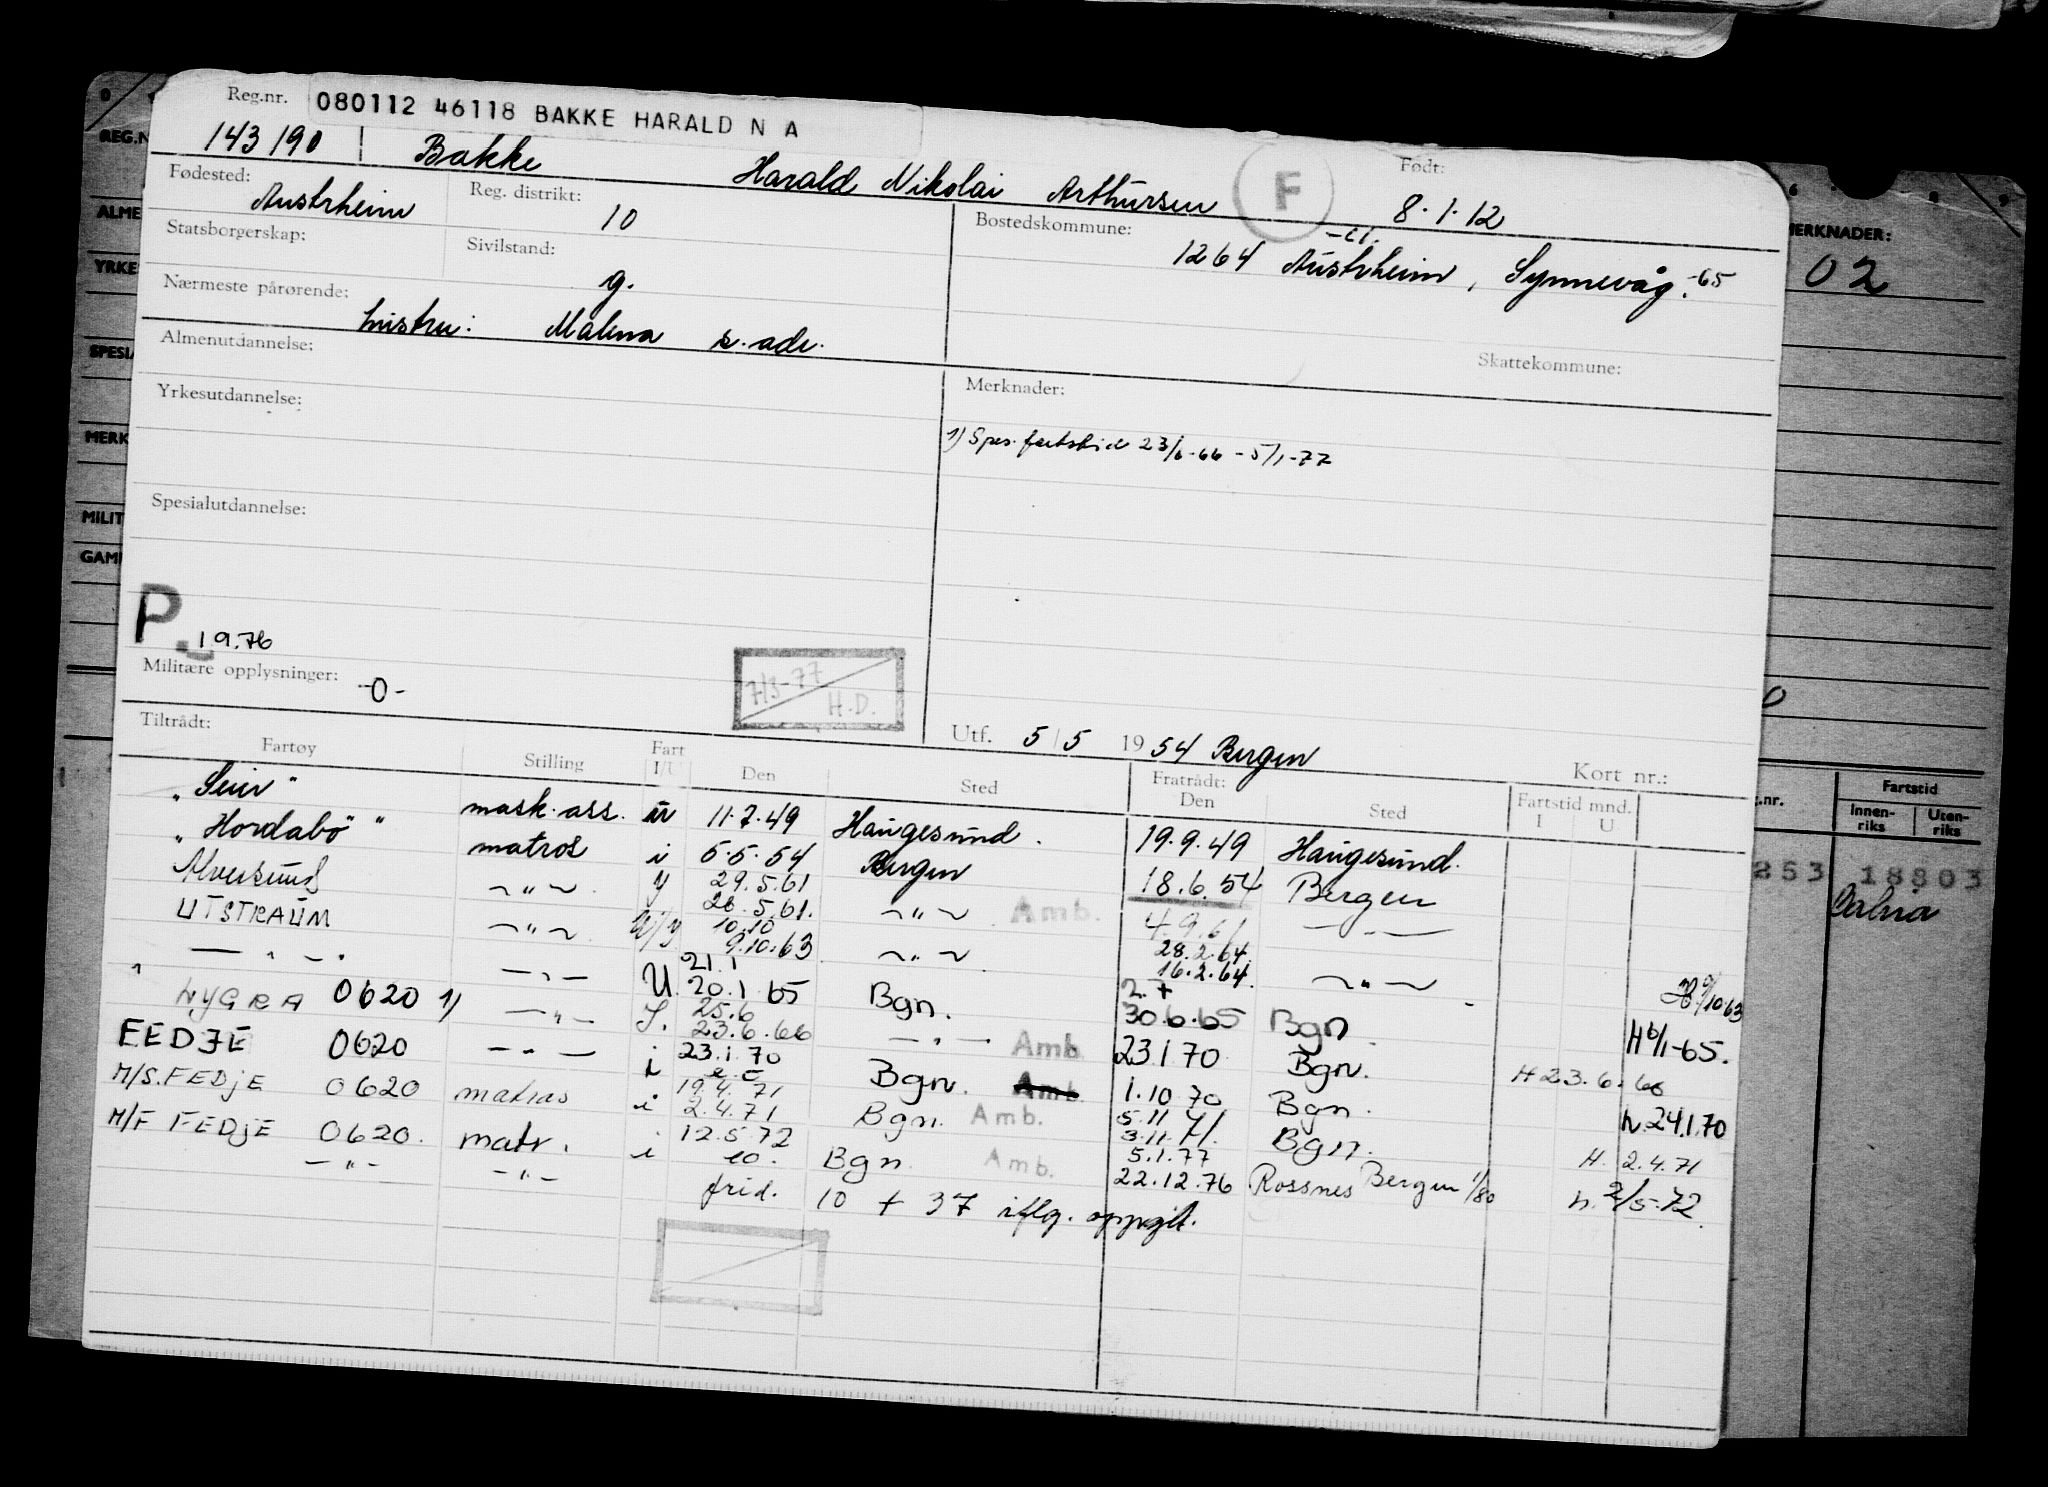 Reg.nr. 080112 46118 BAKKE HARALD N A
143190 Bakke Harald Nikolai Arthursen F Født: 8.1.12
Fødested: Austrheim Reg. distrikt: 10 Bostedskommune:
1264 Austrheim, Synnevåg. -65
Statsborgerskap: Sivilstand: g.
Nærmeste pårørende: hustru: Malena s. adr.
Almenutdannelse: Skattekommune:
Yrkesutdannelse: Merknader:
1) Spes. fartstid 23/6-66 - 5/1-77
Spesialutdannelse:
P. 1 9.76
Militære opplysninger: -0- 7/3-77 H.D.
Tiltrådt: Utf. 5/5 1954 Bergen
Fartøy Stilling Fart I/U Den Sted Fratrådt: Den Sted Fartstid mnd. I U Kort nr.:
mask.ass. 11.7.49 Haugesund. 19.9.49 Haugesund.
"Hordabø" matros i 5.5.54 Bergen 18.6.54 Bergen
Alversund -"- 29.5.61 -"- Amb. 4.9.61 -"-
26.5.61.
UTSTRAUM -"- 10.10 -"- 28.2.64. -"-
9.10.63 16.2.64.
-"- -"- U. 21.1
20.1.65 Bgn. 30.6.65 Bgn.
LYGRA 0620 1) -"- 25.6
23.6.66 -"- Amb. 23.1.70 Bgn. H 6/1-65.
FEDJE 0620 -"- i 23.1.70 Bgn. Amb. 1.10.70 Bgn. H 23.6.66
M/S. FEDJE 0620 matros i 19.4.71 Bgn. Amb. 5.11.71 Bgn. h. 24.1.70
2.4.71 3.11.71.
M/F FEDJE 0620. matr. i 12.5.72 Bgn Amb. 5.1.77 H. 2.4.71
-"- -"- 22.12.76 Rossnes Bergen 1/80 h. 2/5-72.
frid. 10 + 37 iflg. oppgit.
REG.N
ALME
YRKE
SPESIA
MERK
MILIT
GAM
MERKNADER:
02
Fartstid
Innen-riks Uten-riks
253 18803